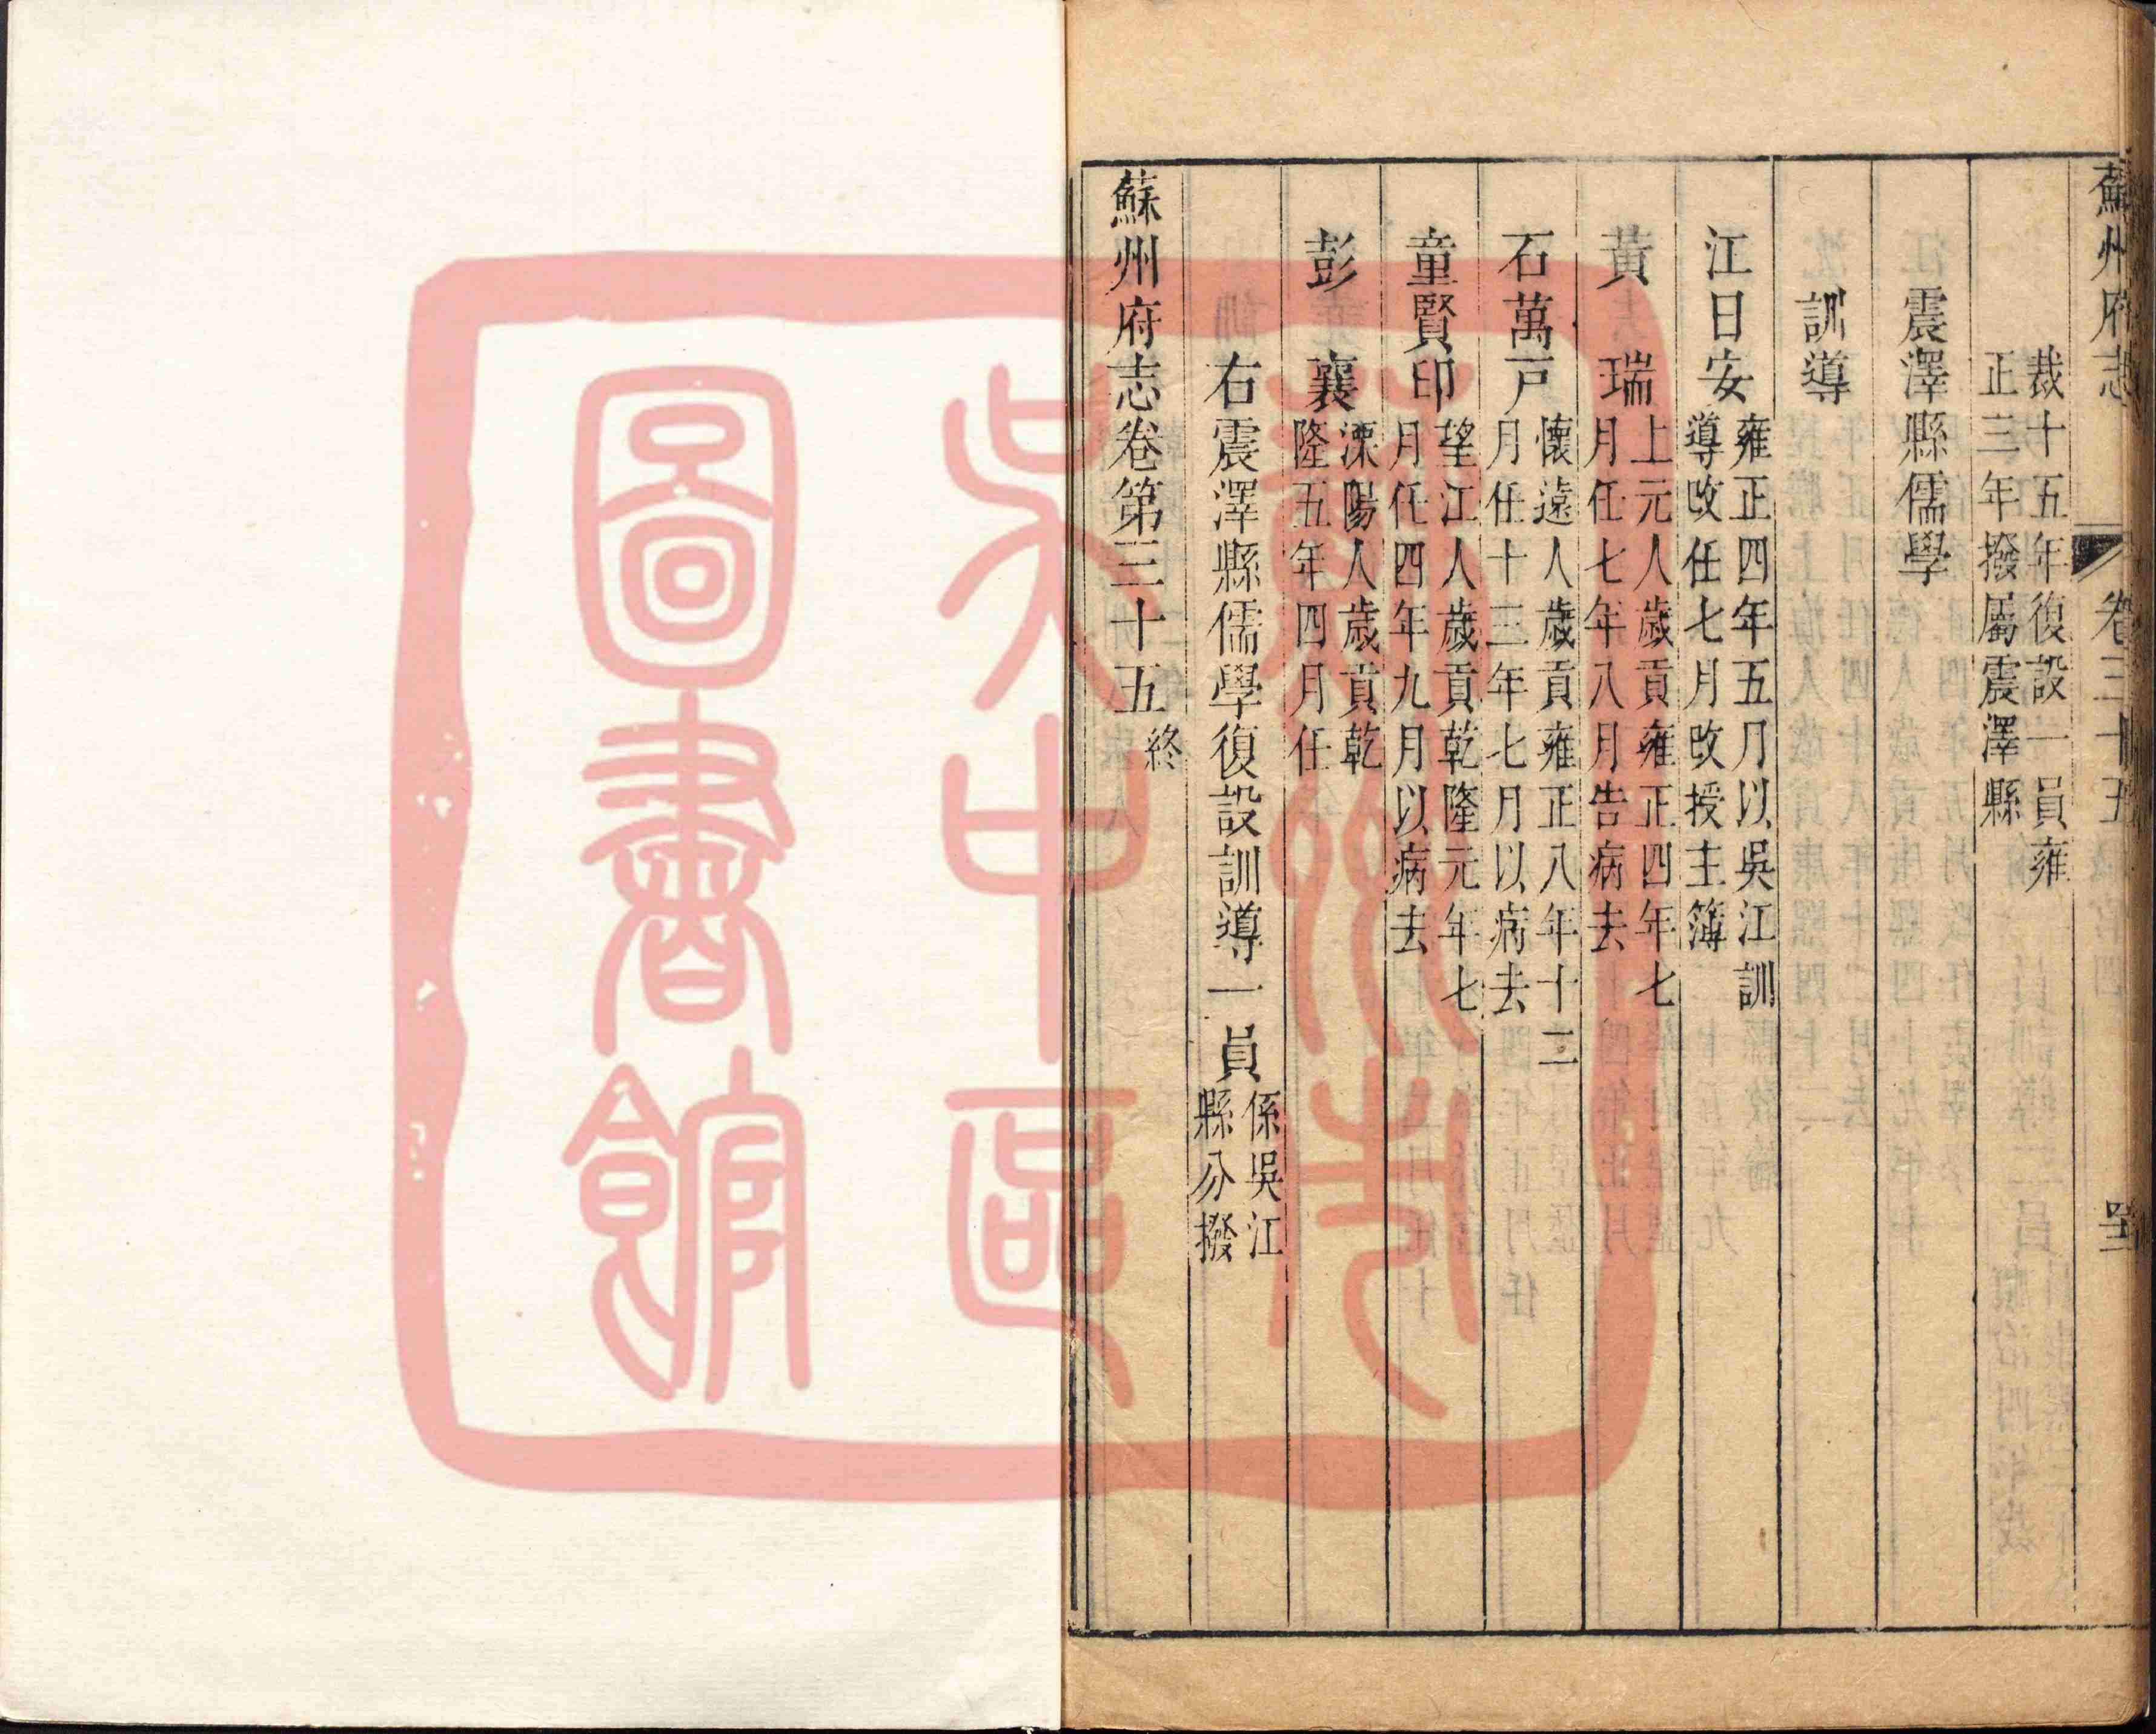 蘇州府志 卷三十五
裁十五年復設一員雍
正三年撥屬震澤縣
震澤縣儒學
訓導
江日安 雍正四年五月以吳江訓
導改任七月改授主簿
黃瑞 上元人歲貢雍正四年七
月任七年八月告病去
石萬戸 懷遠人歲貢雍正八年十二
月任十三年七月以病去
童賢印 望江人歲貢乾隆元年七
月任四年九月以病去
彭襄 溧陽人歲貢乾
隆五年四月任
右震澤縣儒學復設訓導一員 係吳江
縣分撥
蘇州府志卷第三十五 終
吳中區
圖書館